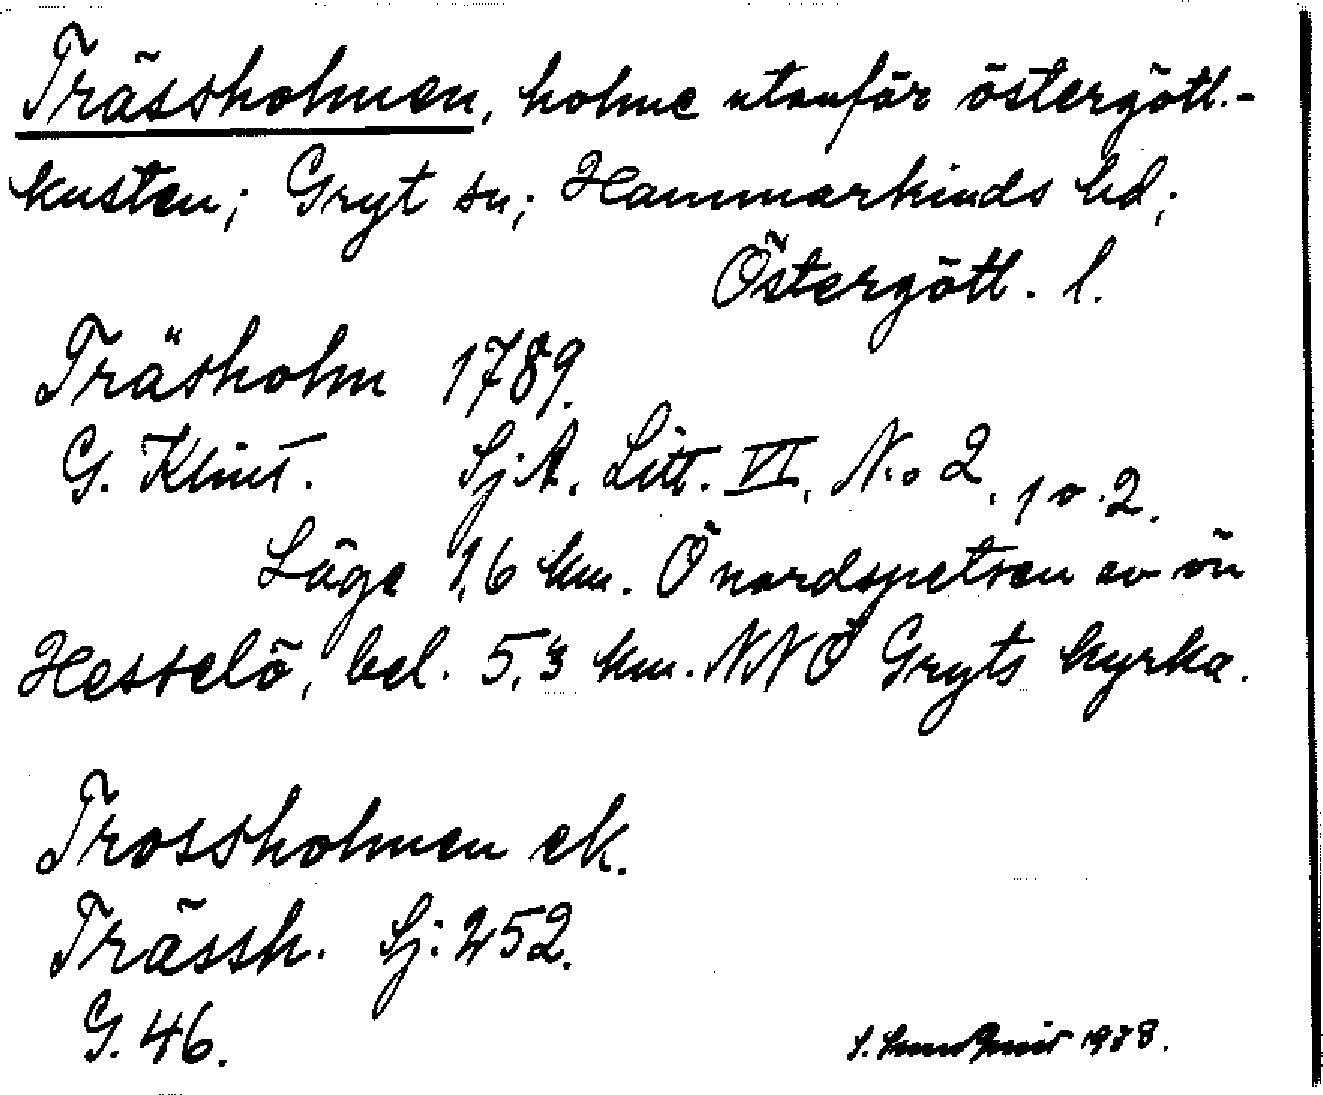 Trässholmen, holme utanför östergötl.-
kusten; Gryt sn; Hammarkinds hd;
Östergötl. l.
Träsholm 1789.
G. Klint. Sj.A. Litt. VI, N:o 2, 1 o. 2.
Läge 1,6 km. Ö nordspetsen av ön
Hesselö, bel. 5,3 km. NNÖ Gryts kyrka.
Trossholmen ek.
Trässh. Sj: 252.
G. 46.
1938.